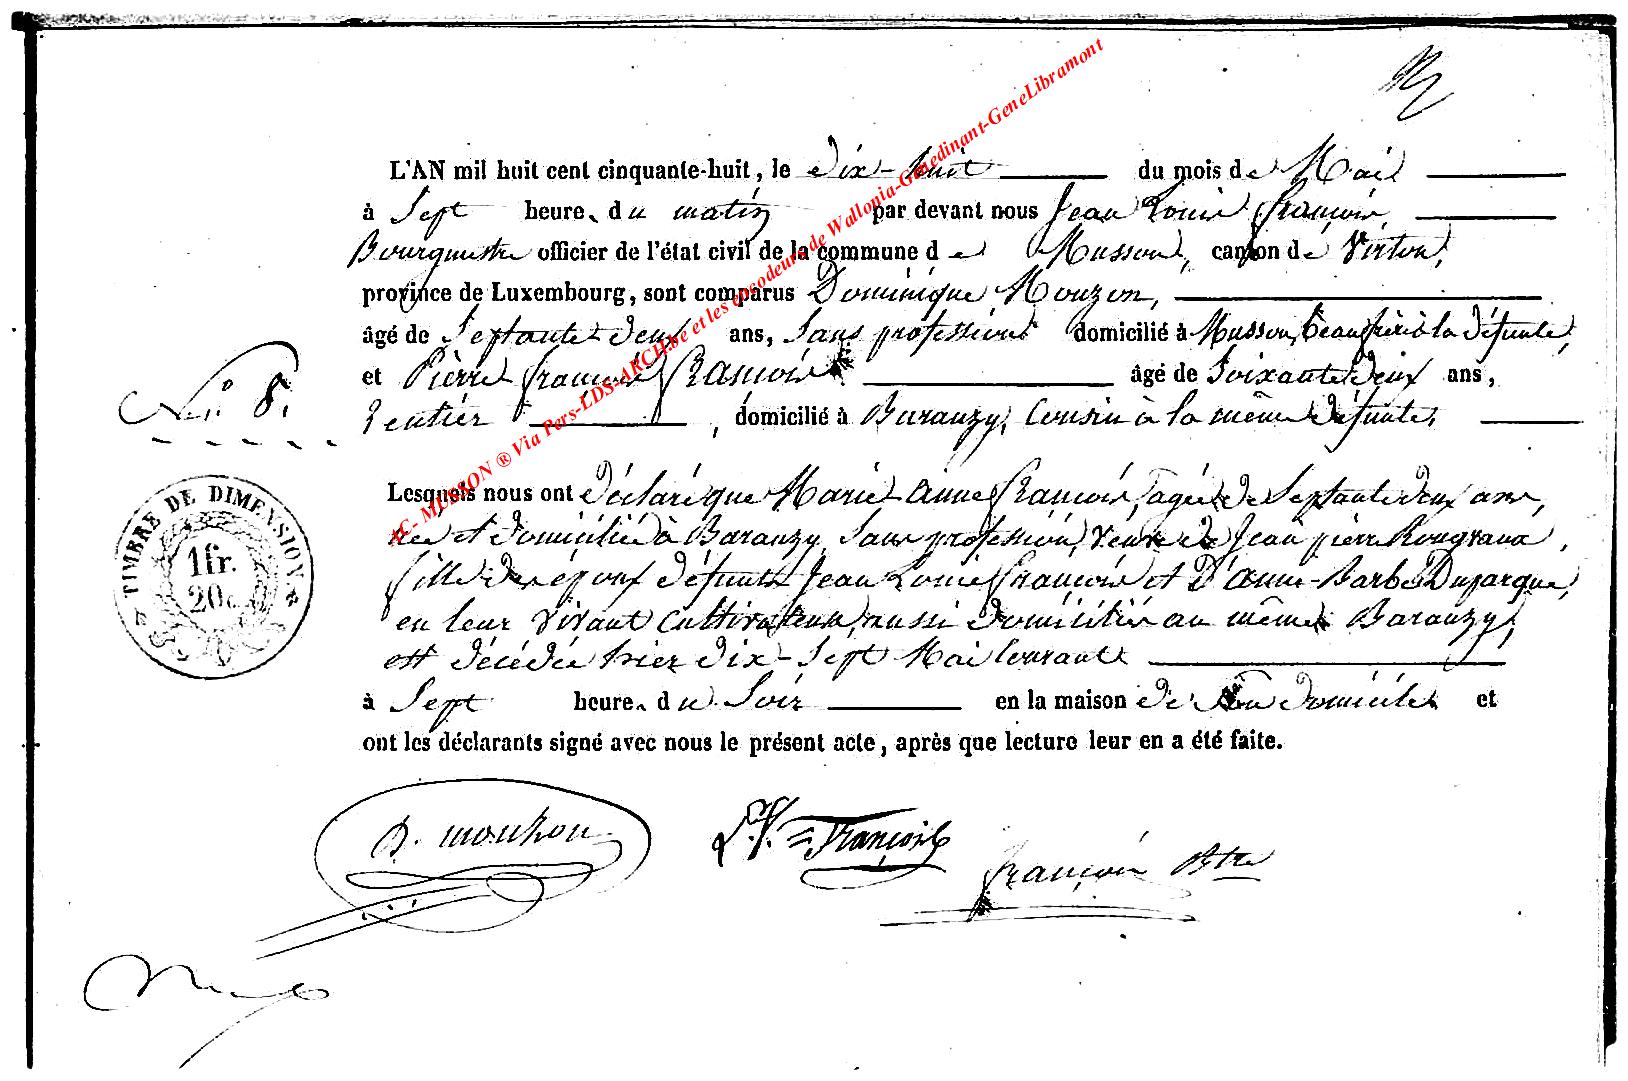 L'AN mil huit cent cinquante-huit, le dix-huit du mois de Mai
à Sept heure du matin par devant nous Jean Louis François,
Bourgmestre officier de l'état civil de la commune de Musson, canton de Virton,
province de Luxembourg, sont comparus Dominique Mouzon,
âgé de Septante deux ans, Sans profession domicilié à Musson, beau frère à la défunte,
et Pierre François François âgé de Soixante deux ans,
rentier, domicilié à Baranzy, Cousin à la même défunte.
N.º 8.
Lesquels nous ont déclaré que Marie Anne François, agée de Septante deux ans,
née et domiciliée à Baranzy, Sans profession, veuve de Jean pierre Rougraux,
fille des époux défunts Jean Louis François et d'Anne-Barbe Duparque,
en leur vivant Cultivateurs, aussi domiciliés au même Baranzy,
est décédée hier dix-Sept Mai Courant
à Sept heure du Soir en la maison de Son domicile et
ont les déclarants signé avec nous le présent acte, après que lecture leur en a été faite.
TIMBRE DE DIMENSION
1 fr.
20 c
D. mouzon
François
François Btre
4C- MUSSON ® Via Pers-LDS-ARCH.be et les encodeurs de Wallonia-Genedinant-GeneLibramont